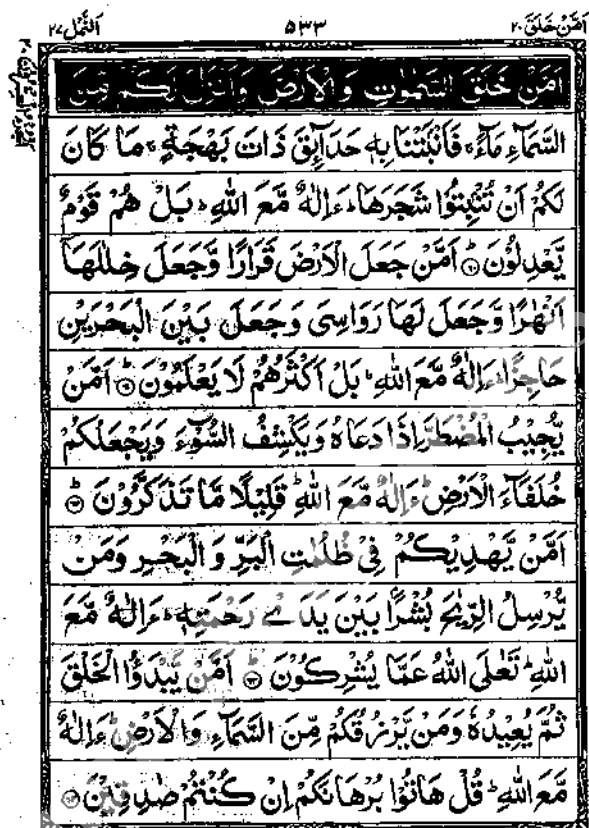 اَمَّنْ خَلَقَ ٢٠
٥٣٣
اَلنَّمْل ٢٧
اَمَّنْ خَلَقَ السَّمٰوٰتِ وَ الْاَرْضَ وَ اَنْزَلَ لَكُمْ مِّنَ
السَّمَآءِ مَآءً ۚ فَاَنْۢبَتْنَا بِهٖ حَدَآئِقَ ذَاتَ بَهْجَةٍ ۚ مَا كَانَ
لَكُمْ اَنْ تُنْۢبِتُوْا شَجَرَهَا ؕ ءَاِلٰهٌ مَّعَ اللّٰهِ ؕ بَلْ هُمْ قَوْمٌ
يَّعْدِلُوْنَ ؕ۶۰ اَمَّنْ جَعَلَ الْاَرْضَ قَرَارًا وَّ جَعَلَ خِلٰلَهَاۤ
اَنْهٰرًا وَّ جَعَلَ لَهَا رَوَاسِیَ وَ جَعَلَ بَيْنَ الْبَحْرَيْنِ
حَاجِزًا ؕ ءَاِلٰهٌ مَّعَ اللّٰهِ ؕ بَلْ اَكْثَرُهُمْ لَا يَعْلَمُوْنَ ؕ۶۱ اَمَّنْ
يُّجِيْبُ الْمُضْطَرَّ اِذَا دَعَاهُ وَ يَكْشِفُ السُّوْٓءَ وَ يَجْعَلُكُمْ
خُلَفَآءَ الْاَرْضِ ؕ ءَاِلٰهٌ مَّعَ اللّٰهِ ؕ قَلِيْلًا مَّا تَذَكَّرُوْنَ ؕ۶۲
اَمَّنْ يَّهْدِيْكُمْ فِیْ ظُلُمٰتِ الْبَرِّ وَ الْبَحْرِ وَ مَنْ
يُّرْسِلُ الرِّيٰحَ بُشْرًۢا بَيْنَ يَدَیْ رَحْمَتِهٖ ؕ ءَاِلٰهٌ مَّعَ
اللّٰهِ ؕ تَعٰلَی اللّٰهُ عَمَّا يُشْرِكُوْنَ ؕ۶۳ اَمَّنْ يَّبْدَؤُا الْخَلْقَ
ثُمَّ يُعِيْدُهٗ وَ مَنْ يَّرْزُقُكُمْ مِّنَ السَّمَآءِ وَ الْاَرْضِ ؕ ءَاِلٰهٌ
مَّعَ اللّٰهِ ؕ قُلْ هَاتُوْا بُرْهَانَكُمْ اِنْ كُنْتُمْ صٰدِقِيْنَ ۶۴